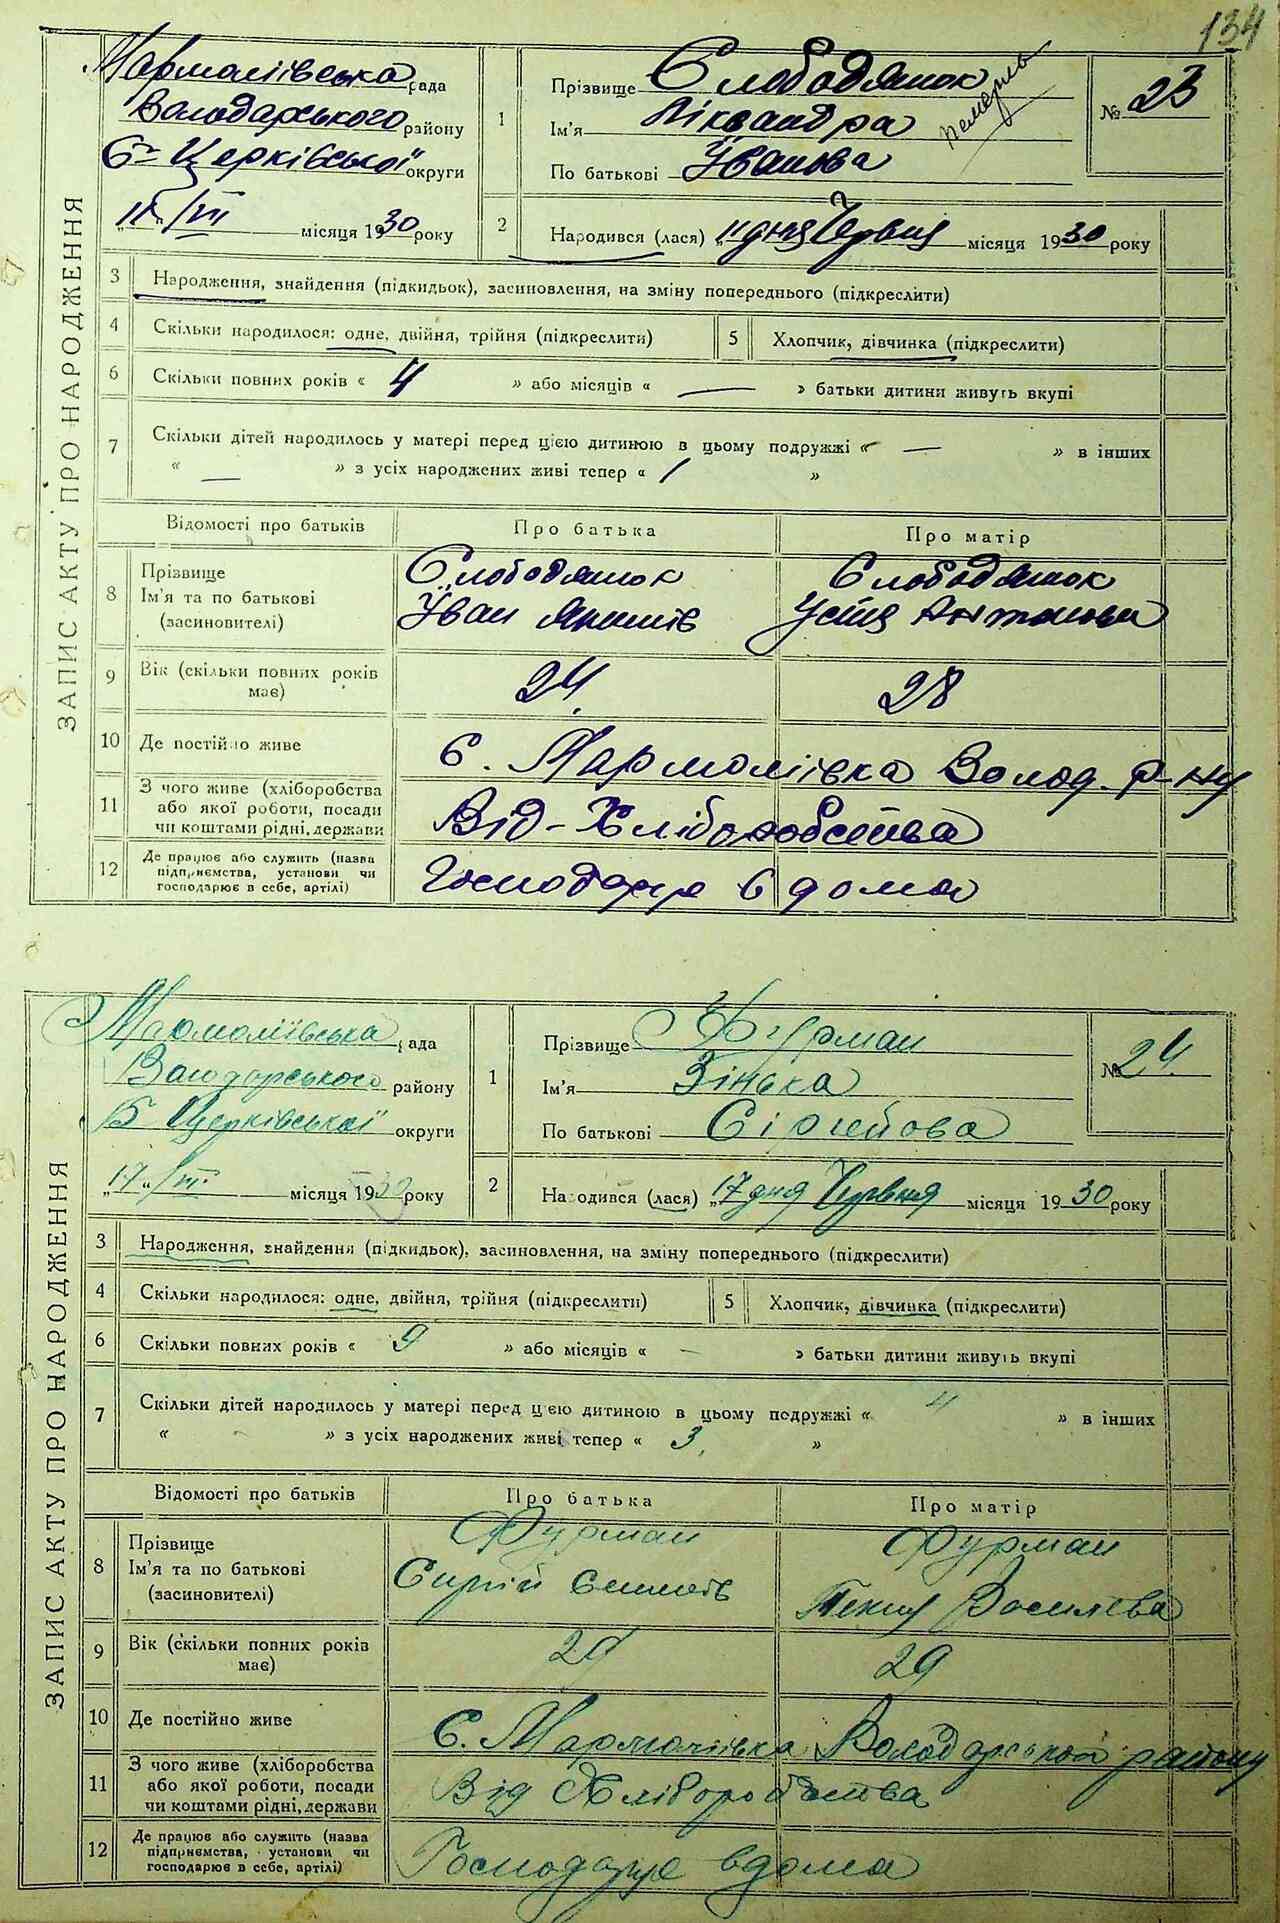 134
ЗАПИС АКТУ ПРО НАРОДЖЕННЯ
Мармоліївська рада
Володарського району
Б-Церківської округи
"11"/VII місяця 1930 року
1
Прізвище Слободянюк
Ім'я Ліквандра
По батькові Іванова
померла
№ 23
2
Народився (лася) "11 дня Червня місяця 1930 року
3 Народження, знайдення (підкидьок), засиновлення, на зміну попереднього (підкреслити)
4 Скільки народилося: одне, двійня, трійня (підкреслити)
5 Хлопчик, дівчинка (підкреслити)
6 Скільки повних років « 4 » або місяців « — » батьки дитини живуть вкупі
7 Скільки дітей народилось у матері перед цією дитиною в цьому подружжі « — » в інших
« — » з усіх народжених живі тепер « 1 »
Відомості про батьків Про батька Про матір
8 Прізвище Слободянюк Слободянюк
Ім'я та по батькові Іван Устя Антонова
(засиновителі)
9 Вік (скільки повних років 24 28
має)
10 Де постійно живе с. Мармоліївка Волод. р-ну
11 З чого живе (хліборобства
або якої роботи, посади Від-Хліборобства
чи коштами рідні, держави
12 Де працює або служить (назва
підприємства, установи чи Господарує вдома
господарює в себе, артілі)
ЗАПИС АКТУ ПРО НАРОДЖЕННЯ
Мармоліївська рада
Володарського району
Б Церківської округи
"17"/VII. місяця 1930 року
1
Прізвище Фурман
Ім'я Зінька
По батькові Сіргейова
№ 24.
2
Народився (лася) "17 дня Червня місяця 1930 року
3 Народження, знайдення (підкидьок), засиновлення, на зміну попереднього (підкреслити)
4 Скільки народилося: одне, двійня, трійня (підкреслити)
5 Хлопчик, дівчинка (підкреслити)
6 Скільки повних років « 9 » або місяців « – » батьки дитини живуть вкупі
7 Скільки дітей народилось у матері перед цією дитиною в цьому подружжі « 4 » в інших
« » з усіх народжених живі тепер « 3. »
Відомості про батьків Про батька Про матір
8 Прізвище Фурман Фурман
Ім'я та по батькові Сиргій Василева
(засиновителі)
9 Вік (скільки повних років 29 29
має)
10 Де постійно живе с. Мармоліївка Володарського району
11 З чого живе (хліборобства
або якої роботи, посади Від Хліборобства
чи коштами рідні, держави
12 Де працює або служить (назва
підприємства, установи чи Господарує вдома
господарює в себе, артілі)